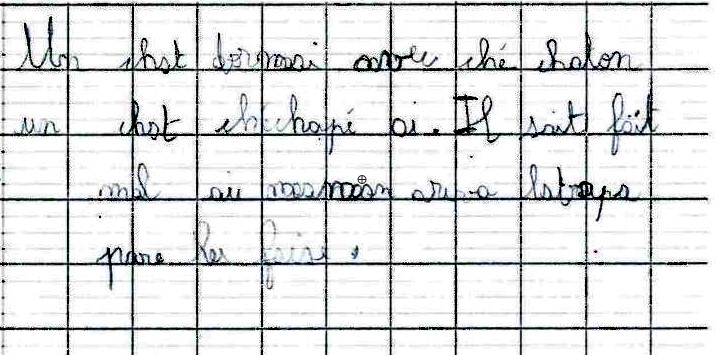 Un chat dormai avec ché chaton
un chat chéchapé ai. Il sait fait
mal au maman ariva latrapa
pare les faise.